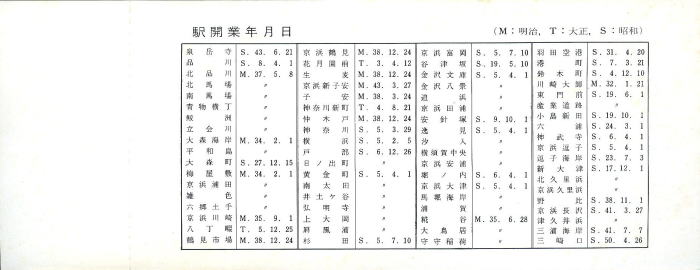 駅開業年月日
(M:明治, T:大正, S:昭和)
泉岳寺 S. 43. 6. 21
品川 S. 8. 4. 1
北品川 M. 37. 5. 8
北馬場 〃
南馬場 〃
青物横丁 〃
鮫洲 〃
立会川 〃
大森海岸 M. 34. 2. 1
平和島 〃
大森町 S. 27. 12. 15
梅屋敷 M. 34. 2. 1
京浜蒲田 〃
雑色 〃
六郷土手 〃
京浜川崎 M. 35. 9. 1
八丁畷 T. 5. 12. 25
鶴見市場 M. 38. 12. 24
京浜鶴見 M. 38. 12. 24
花月園前 T. 3. 4. 12
生麦 M. 38. 12. 24
京浜新子安 M. 43. 3. 27
子安 M. 38. 3. 24
神奈川新町 T. 4. 8. 21
仲木戸 M. 38. 12. 24
神奈川 S. 5. 3. 29
横浜 S. 5. 2. 5
戸部 S. 6. 12. 26
日ノ出町 〃
黄金町 S. 5. 4. 1
南太田 〃
井土ケ谷 〃
弘明寺 〃
上大岡 〃
屛風浦 〃
杉田 S. 5. 7. 10
京浜富岡 S. 5. 7. 10
谷津坂 S. 19. 5. 10
金沢文庫 S. 5. 4. 1
金沢八景 〃
追浜 〃
京浜田浦 〃
安針塚 S. 9. 10. 1
逸見 S. 5. 4. 1
汐入 〃
横須賀中央 〃
京浜安浦 〃
堀ノ内 S. 6. 4. 1
京浜大津 S. 5. 4. 1
馬堀海岸 〃
浦賀 〃
糀谷 M. 35. 6. 28
大鳥居 〃
守守稲荷 〃
羽田空港 S. 31. 4. 20
港町 S. 7. 3. 21
鈴木町 S. 4. 12. 10
川崎大師 M. 32. 1. 21
東門前 S. 19. 6. 1
産業道路 〃
小島新田 S. 19. 10. 1
六浦 S. 24. 3. 1
神武寺 S. 6. 4. 1
京浜逗子 S. 5. 4. 1
逗子海岸 S. 23. 7. 3
新大津 S. 17. 12. 1
北久里浜 〃
京浜久里浜 〃
野比 S. 38. 11. 1
京浜長沢 S. 41. 3. 27
津久井浜 〃
三浦海岸 S. 41. 7. 7
三崎口 S. 50. 4. 26